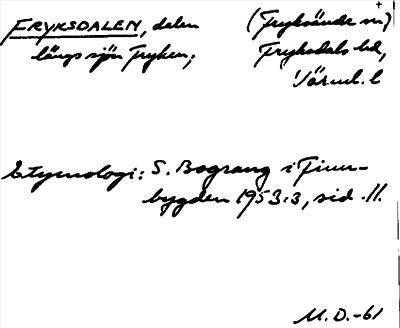 FRYKSDALEN, delen (Fryksände sn)
längs sjön Fryken; Fryksdals hd,
Värml. l
Etymologi: S. Bograng i Finn-
bygden 1953:3, sid .11.
M.D.-61